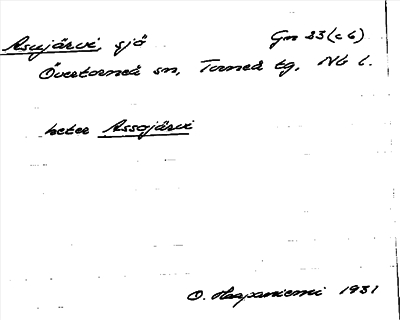 Asujärvi, sjö Gm 23 (c 6)
Övertorneå sn, Torneå tg, Nb l.
heter Assajärvi
O. Haapaniemi 1931